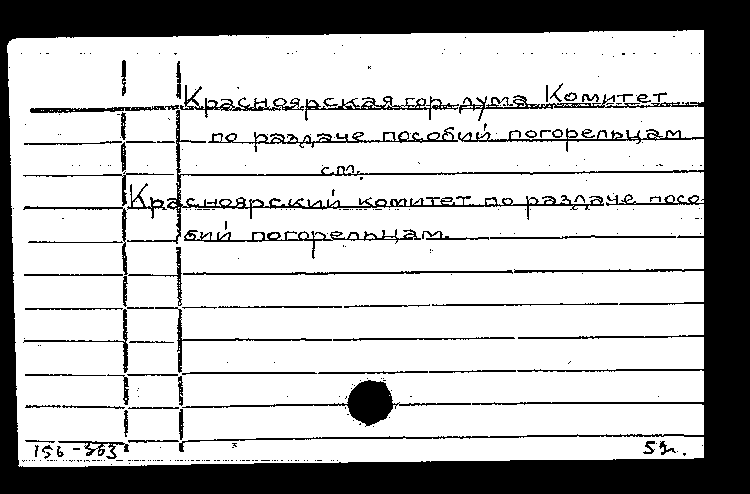 Красноярская гор. дума Комитет
по раздаче пособий погорельцам
см.
Красноярский комитет по раздаче посо
бий погорельцам.
156-363